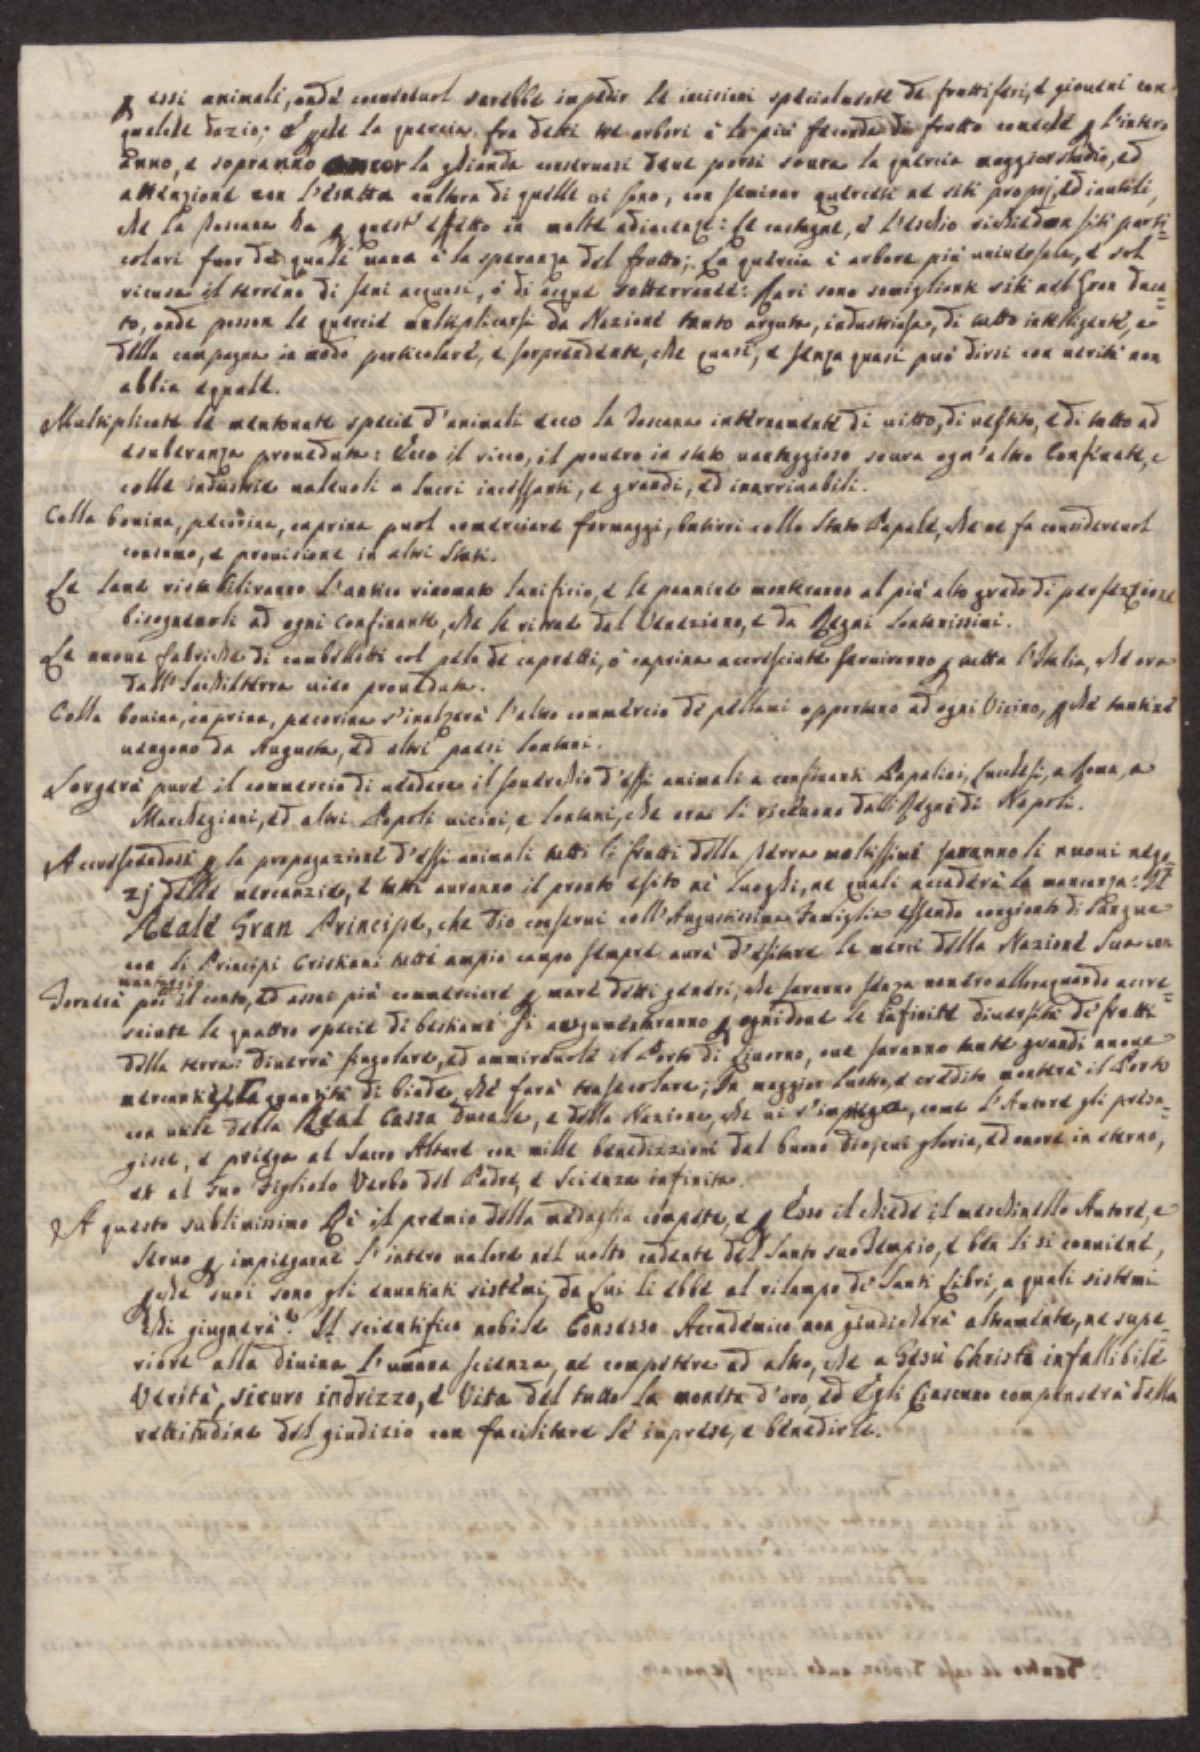 essi animali, onde convenevol sarebbe impedir le incisioni specialmente de fruttiferi, e giovani con
qualche dazio; e che la quercia fra detti tre arbori è la più feconda di frutto comodo l'intero
Anno, e sopranno ancor la ghianda conservasi deve porsi sovra la quercia maggior studio, ed
attenzione con l'esatta cultura di quelle vi sono, con seminar quercieti ne siti proprj, ed inutili,
che la Toscana ha quest'effetto in molte adiacenze: Le castagne, e l'eschio richiedono siti parti=
colari fuor de quali vana è la speranza del frutto; La quercia è arbore più universale, e sol
ricusa il terreno di seni acquosi, ò di acque sotterranee: Rari sono somiglianti siti nel Gran Duca=
to, onde posson le quercie multiplicarsi da Nazione tanto arguta, industriosa, di tutto intelligente, e
della campagna in modo particolare, e sorprendente, che quasi, e senza quasi può dirsi con verità non
abbia eguale.
Multiplicate le mentovate specie d'animali ecco la Toscana internamente di vitto, di vestito, e di tutto ad
esuberanza proveduta: Ecco il ricco, il povero in stato vantaggioso sovra ogn'altro Confinante, e
colle industrie valevoli a lucri incessanti, e grandi, ed inarrivabili.
Colla bovina, pecorina, caprina puol comerciare formaggi, butirri collo Stato Papale, che ne fa considerevol
consumo, e provisione in altri Stati.
Le lane ristabiliranno l'antico rinomato lanificio, e le pannine monteranno al più alto grado di perfezzione
bisognevoli ad ogni Confinante, che le riceve dal Veneziano, e da Regni lontanissimi.
Le nuove fabriche di cambellotti col pelo de capretti, ò caprina accresciute serviranno tutta l'Italia, che ora
dall'Inchilterra vien proveduta.
Colla bovina, caprina, pecorina s'inalzerà l'altro commercio de pellami opportuno ad ogni Vicino, che tantine
vengono da Augusta, ed altri paesi lontani.
Sorgerà pure il commercio di vendere il soverchio d'essi animali a confinanti Papalini, Lucchesi, a Roma, a
Marchegiani, ed altri Popoli vicini, e lontani, che ora li ricevono dalli Regni di Napoli.
Accrescendosi la propagazione d'essi animali tutti li frutti della Terra moltissimi saranno li nuovi nego=
zj delle mercanzie, e tutti avranno il pronto esito nè luoghi, ne quali accaderà la mancanza: Il
Reale Gran Principe, che Dio conservi coll'Augustissima Famiglia essendo congionto di Sangue
con li Principi Cristiani tutti ampio campo sempre avrà d'esitare le merci della Nazione Sua con
vantaggio
Tornerà poi il conto, ed assai più commerciare mare detti generi, che saranno senza numero allora quando accre=
sciute le quattro specie di bestiami si augumenteranno ognidove le infinite diversità de frutti
della terra: diverrà singolare, ed ammirabile il Porto di Livorno, ove saranno tante grandi nuove
mercanzie, e la quantità di biade, che farà trasecolare; In maggior lustro, e credito monterà il Porto
con utile della Real Cassa Ducale, e della Nazione, che vi s'impiega, come l'Autore gli presa=
gisce, e priega al Sacro Altare con mille benedizzioni dal buono Dio, cui gloria, ed onore in eterno,
et al Suo Figliolo Verbo del Padre, e Scienza infinita.
A questo sublimissimo Rè il premio della medaglia compete, e Esso il chiede il meschinello Autore, e
Servo impiegarne l'intero valore nel volto cadente del Santo suo Tempio, e ben li si conviene,
che suoi sono gli enuntiati sistemi, da Lui li ebbe al rilampo de Santi Libri, a quali sistemi
Chi giugnerà? Il scientifico nobile Consesso Accademico non giudicherà altramente, ne supe=
riore alla divina l'umana scienza, ne competere ad altro, che a Gesù Christo infallibile
Verità, sicuro indrizzo, e Vita del tutto la moneta d'oro, ed Egli Ciascuno compenserà della
rettitudine del giudizio con facilitare le imprese, e benedirle.